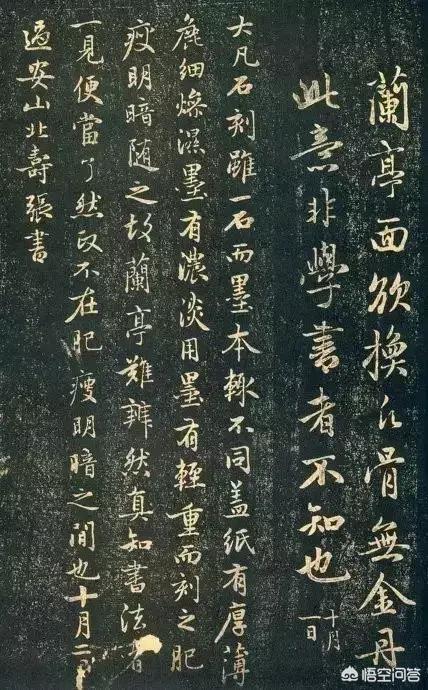 蘭亭面欲換凡骨無金丹
此意非學書者不知也
十月
一日
大凡石刻雖一石而墨本輙不同盖紙有厚薄
麁細燥濕墨有濃淡用墨有輕重而刻之肥
瘦明暗随之故蘭亭難辨然真知書法者
一見便當了然政不在肥瘦明暗之間也十月二日
過安山北壽張書
悟空问答